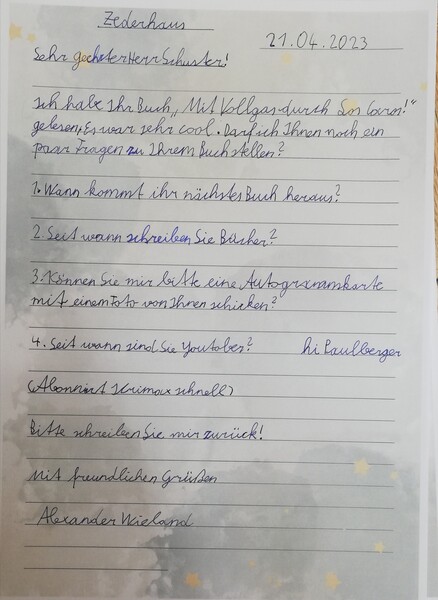 Zederhaus
21.04.2023
Sehr geehrter Herr Schuster!
Ich habe Ihr Buch „Mit Vollgas durch Los Carros!"
gelesen. Es war sehr cool. Darf ich Ihnen noch ein
paar Fragen zu Ihrem Buch stellen?
1. Wann kommt ihr nächstes Buch heraus?
2. Seit wann schreiben Sie Bücher?
3. Können Sie mir bitte eine Autogrammkarte
mit einem Foto von Ihnen schicken?
4. Seit wann sind Sie Youtober? hi Paulberger
(Abonnirt schnell)
Bitte schreiben Sie mir zurück!
Mit freundlichen Grüßen
Alexander Wieland